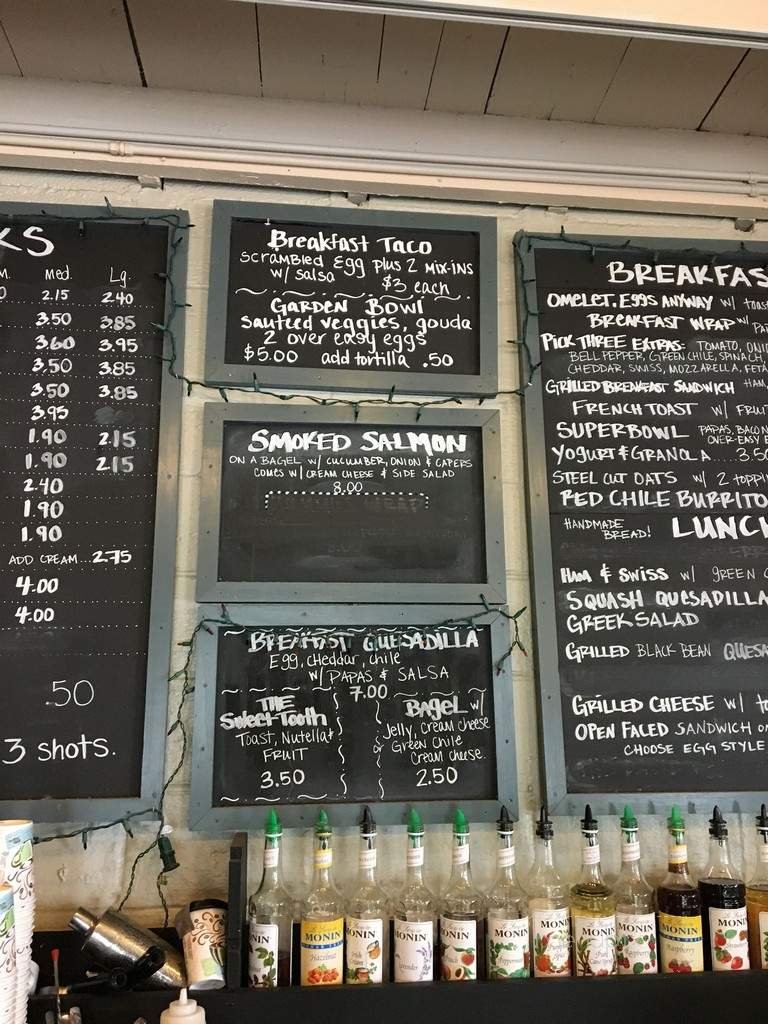 KS
Med. Lg.
2.15 2.40
3.50 3.85
3.60 3.95
3.50 3.85
3.50 3.85
3.95
1.90 2.15
1.90 2.15
2.40
1.90
1.90
ADD CREAM...2.75
4.00
4.00
.50
3 shots.
Breakfast Taco
scrambled Egg plus 2 mix-ins
w/ salsa $3 each
GARDEN BOWL
sauteed veggies, gouda
2 over easy eggs
$5.00 add tortilla .50
SMOKED SALMON
ON A BAGEL w/ CUCUMBER, ONION & CAPERS
COMES w/ CREAM CHEESE & SIDE SALAD
8.00
BREAKFAST QUESADILLA
Egg, cheddar, chile
w/ PAPAS & SALSA
7.00
THE
Sweet Tooth
Toast, Nutella &
FRUIT
3.50
BAGEL w/
Jelly, cream cheese
or Green Chile
cream cheese.
2.50
BREAKFAS
OMELET, EGGS ANYWAY w/ toast
BREAKFAST WRAP w/
PICK THREE EXTRAS: TOMATO, ONIO
BELL PEPPER, GREEN CHILE, SPINACH,
CHEDDAR, SWISS, MOZZARELLA, FETA
GRILLED BREAKFAST SANDWICH HAM,
FRENCH TOAST w/ FRUIT
SUPERBOWL PAPAS, BACON
OVER-EASY E
YOGURT & GRANOLA 3.50
STEEL CUT OATS w/ 2 toppin
RED CHILE BURRITO
HANDMADE
BREAD! LUNCH
HAM & SWISS w/ GREEN C
SQUASH QUESADILLA
GREEK SALAD
GRILLED BLACK BEAN QUESA
GRILLED CHEESE w/ to
OPEN FACED SANDWICH on
CHOOSE EGG STYLE
MONIN
Hazelnut
MONIN
Irish Cream
MONIN
Lavender
MONIN
Peach
MONIN
Peppermint
MONIN
MONIN
Pure Cane Syrup
MONIN
Raspberry
MONIN
Raspberry
MONIN